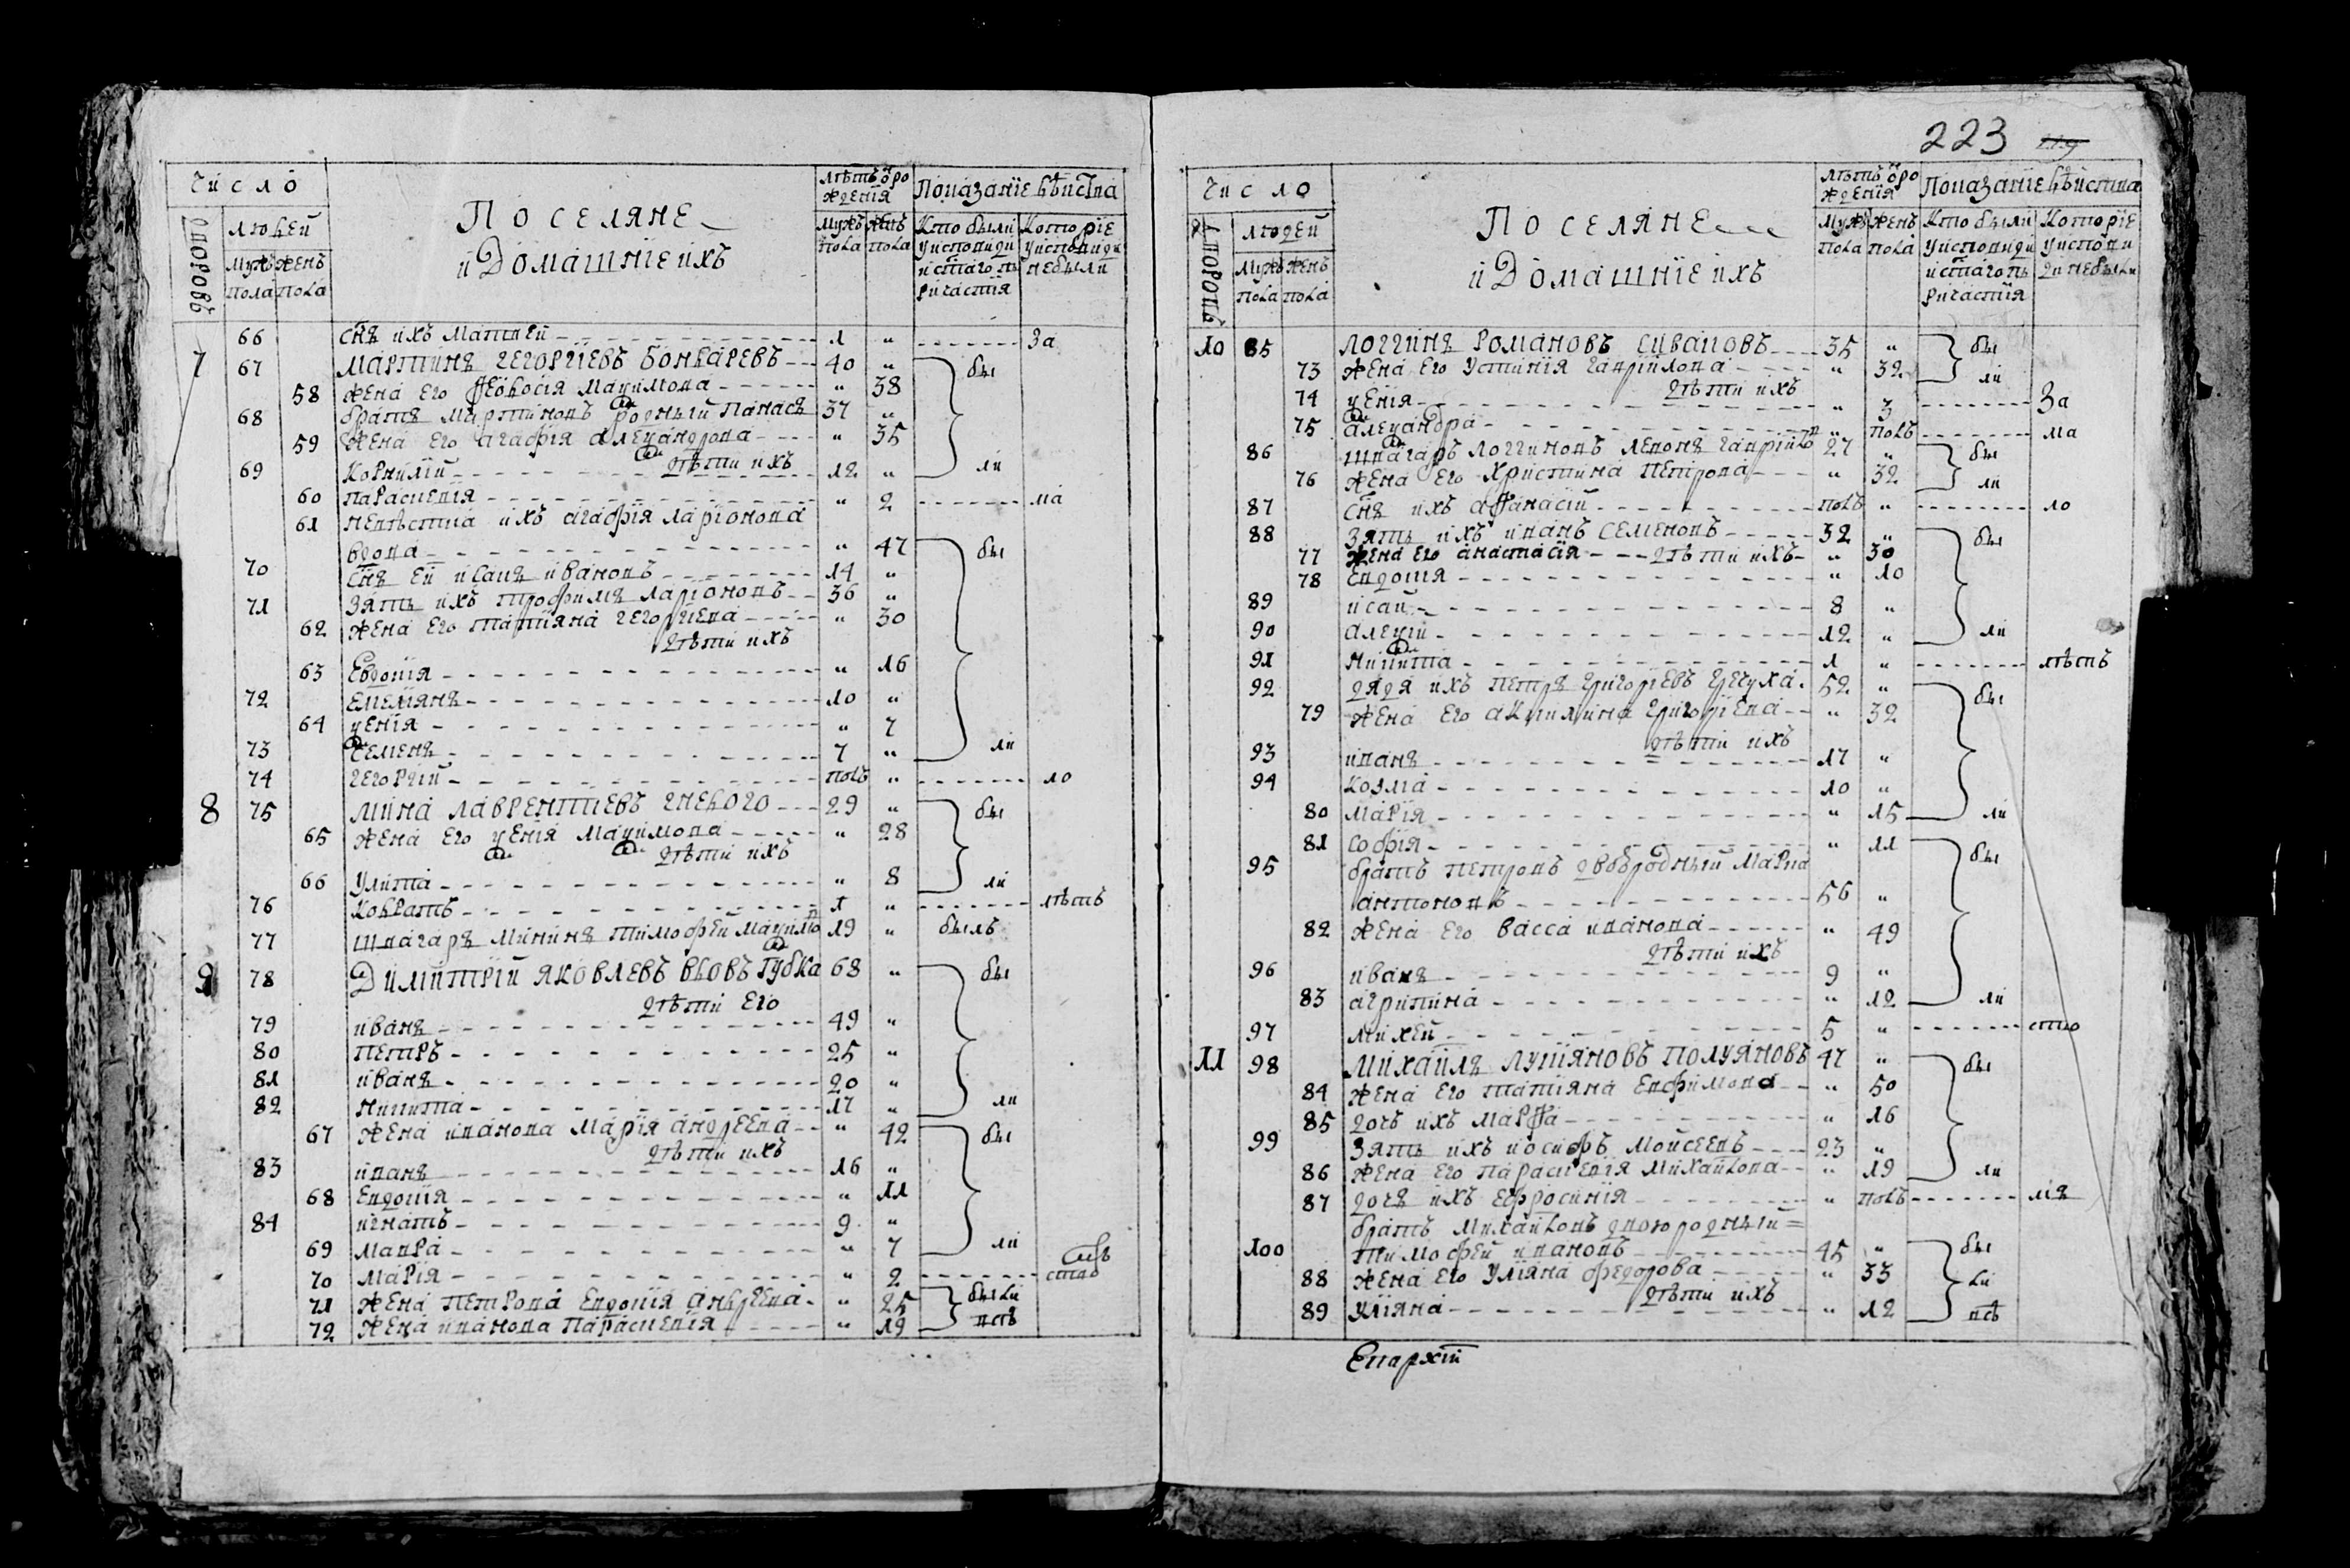 223
Число
Дворовъ
Людей
Мужъ пола
Женъ пола
Поселяне
и Домашнïе ихъ
Лѣтъ ѿ рожденïя
Мужъ пола
Женъ пола
Показанïе дѣйства
Кто были у исповиди и стаго причастïя
Которïе у исповиди небыли
66 снъ ихъ Матвей 1 „ за
7 67 Мартинъ Гегоргïевъ Бондаревъ 40 „ бы
58 жена его Ѳеодосïя Максимова „ 38
68 братъ Мартиновъ родный Панасъ 37 „
59 жена его Агафïя Александрова „ 35
дѣти ихъ
69 Корнилïй 12 „ ли
60 Параскевïя „ 2 ма
61 невѣстка ихъ Агафïя Ларïонова
вдова „ 47 бы
70 снъ ей Исакъ Ивановъ 14 „
71 зять ихъ Трофимъ Ларïоновъ 36 „
62 жена его Татïяна Гегоргïева „ 30
дѣти ихъ
63 Евдокïя „ 16
72 Емелïянъ 10 „
64 Ксенïя „ 7
73 Семенъ 7 „ ли
74 Гегоргïй полъ „ ло
8 75 Мина Лаврентïевъ Гнедого 29 „ бы
65 жена его Ксенïя Максимова „ 28
дѣти ихъ
66 Улита „ 8 ли
76 Кодратъ 1 „ лѣтъ
77 швагаръ Мининъ Тимофей Максимовъ 19 „ былъ
9 78 Димитрïй Яковлевъ вдовъ Губка 68 „ бы
дѣти его
79 Иванъ 49 „
80 Петръ 25 „
81 Иванъ 20 „
82 Никита 17 „ ли
67 жена Иванова Марïя Андреева „ 42 бы
дѣти ихъ
83 Иванъ 16 „
68 Евдокïя „ 11
84 Игнатъ 9 „
69 Мавра „ 7 ли
70 Марïя „ 2 ство
71 жена Петрова Евдокïя Андреева „ 25 были
72 жена Иванова Параскевïя „ 19 всѣ
Число
Дворовъ
Людей
Мужъ пола
Женъ пола
Поселяне
и Домашнïе ихъ
Лѣтъ ѿ рожденïя
Мужъ пола
Женъ пола
Показанïе дѣйства
Кто были у исповиди и стаго причастïя
Которïе у исповиди небыли
10 85 Логгинъ Романовъ 35 „ бы
73 жена его Устинïя Гаврïилова „ 32 ли
дѣти ихъ
74 Ксенïя „ 3 за
75 Александра „ полъ ма
86 швагаръ Логгиновъ Левонъ Гаврïиловъ 27 „ бы
76 жена его Христина Петрова „ 32 ли
87 снъ ихъ Аѳанасïй полъ „ ло
88 зять ихъ Иванъ Семеновъ 32 „ бы
77 жена его Анастасïя дѣти ихъ „ 30
78 Евдокïя „ 10
89 Исай 8 „
90 Алексïй 12 „ ли
91 Никита 1 „ лѣтъ
92 дядя ихъ Петръ Григорïевъ Гречуха 52 „ бы
79 жена его Акилина Григорïева „ 32
дѣти ихъ
93 Иванъ 17 „
94 Козма 10 „
80 Марïя „ 15 ли
81 Софïя „ 11 бы
95 братъ Петровъ двоюродный Марко
Антоновъ 56 „
82 жена его Васса Иванова „ 49
дѣти ихъ
96 Иванъ 9 „
83 Агрипина „ 12 ли
97 Михей 5 „ ство
11 98 Михаилъ Лукïяновъ Полуяновъ 47 „ бы
84 жена его Татïяна Евфимова „ 50
85 дочъ ихъ Марѳа „ 16
99 зять ихъ Иосифъ Мойсеевъ 23 „
86 жена его Параскевïя Михайлова „ 19 ли
87 дочъ ихъ Ефросинïя „ полъ мъ
братъ Михайловъ двоюродный
100 Тимофей Ивановъ 45 „ бы
88 жена его Улïяна Федорова „ 33 ли
дѣти ихъ
89 Улïяна „ 12 всѣ
Епархïи